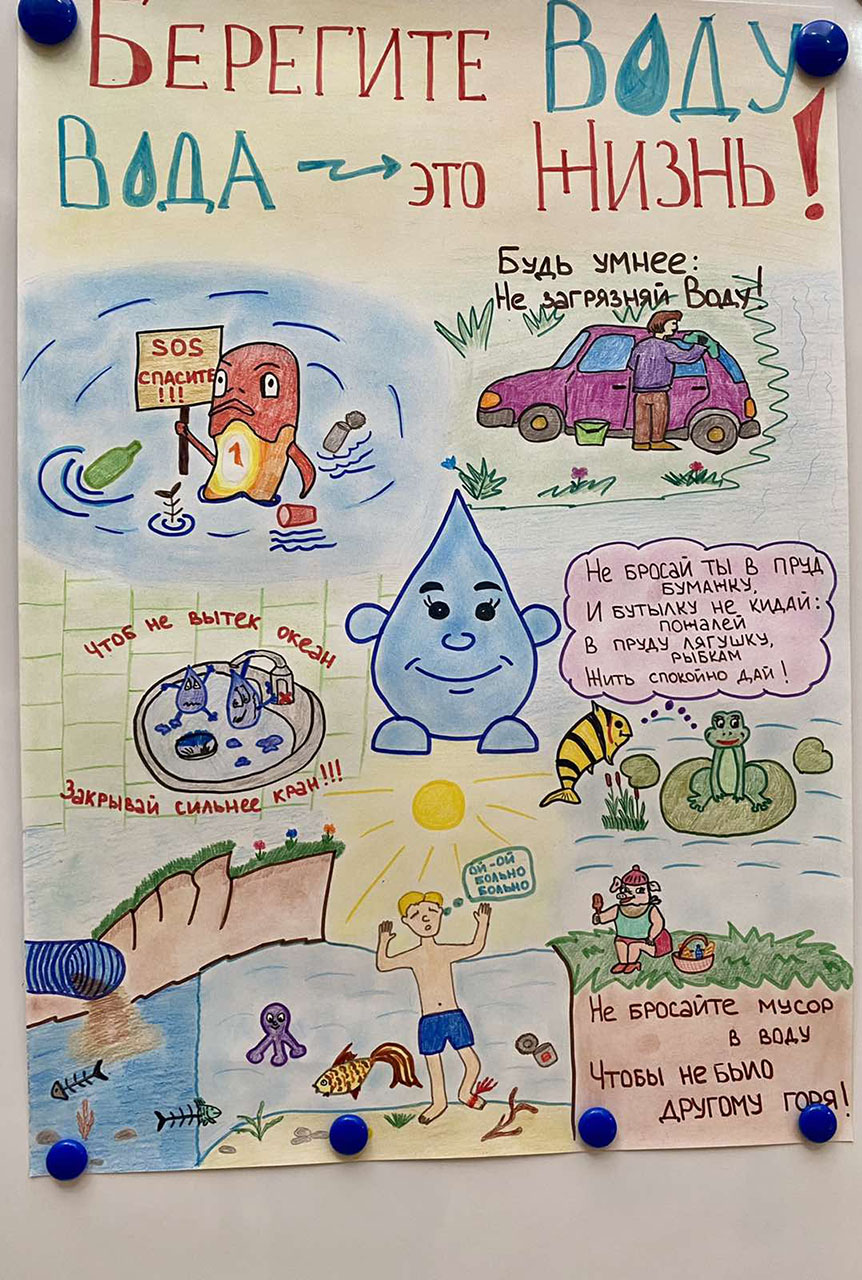 БЕРЕГИТЕ ВОДУ
ВОДА это ЖИЗНЬ!
Будь умнее:
Не загрязняй Воду!
SOS
СПАСИТЕ
!!!
1
Не бросай ты в пруд
бумажку,
И бутылку не кидай:
пожалей
В пруду лягушку,
рыбкам
Жить спокойно дай!
Чтоб не вытек океан
Закрывай сильнее кран!!!
ОЙ-ОЙ
БОЛЬНО
БОЛЬНО
Не бросайте мусор
в воду
Чтобы не было
другому горя!